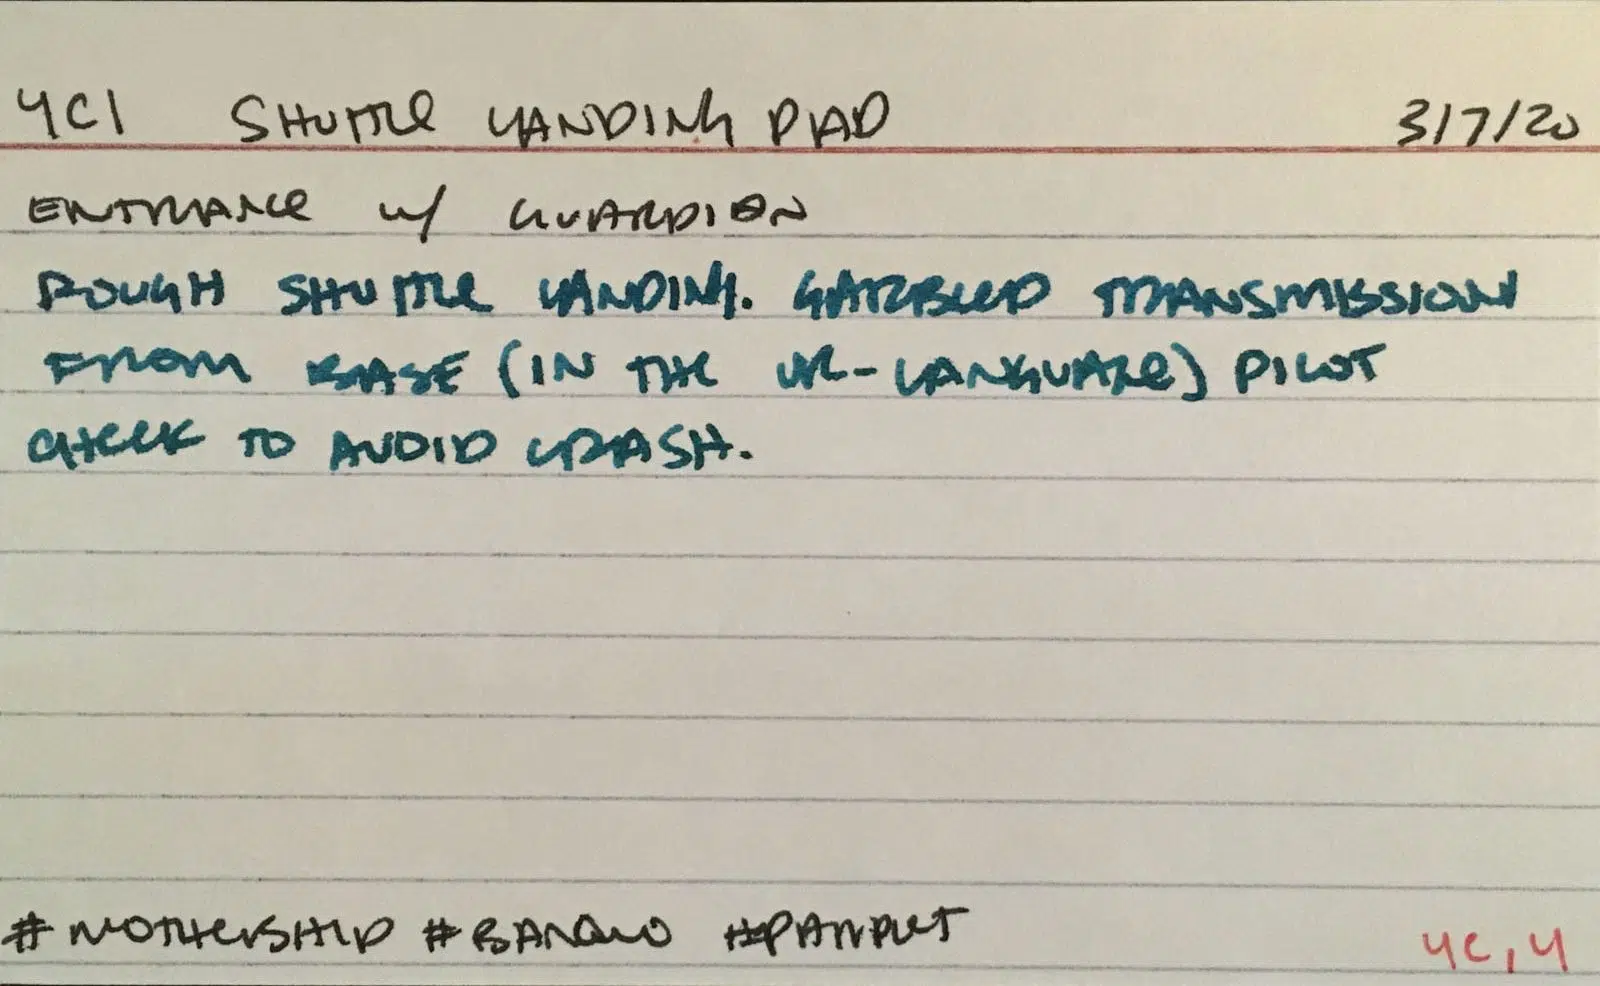 4C1 SHUTTLE LANDING PAD 3/7/20
ENTRANCE w/ GUARDION
ROUGH SHUTTLE LANDING. GARBLED TRANSMISSION
FROM BASE (IN THE UR-LANGUAGE) PILOT
CHECK TO AVOID CRASH.
#MOTHERSHIP #BANQUO #PAMPLET
4C, 4